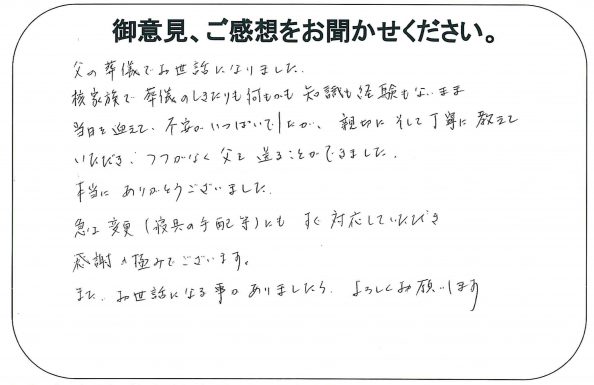 御意見、ご感想をお聞かせください。
父の葬儀でお世話になりました。
核家族で葬儀のしきたりも何もかも知識も経験もないまま
当日を迎えて、不安がいっぱいでしたが、親切にそして丁寧に教えて
いただき、つつがなく父を送ることができました。
本当にありがとうございました。
急な変更(寝具の手配等)にもすぐ対応していただき
感謝の極みでございます。
また、お世話になる事がありましたら、よろしくお願いします